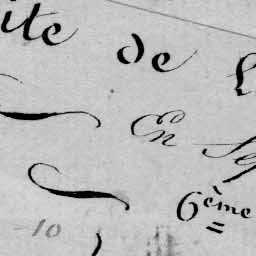 ite de
En Sep
6ème
10